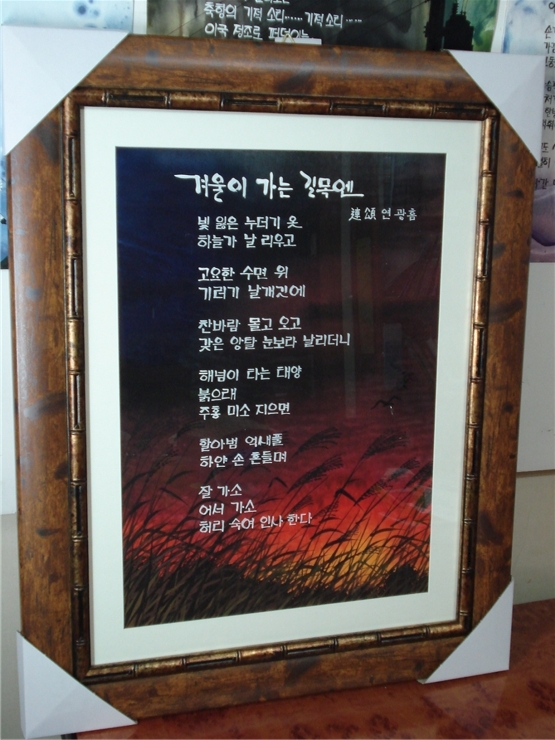 축항의 기적 소리......기적소리......
이국 정조로 퍼덕이는
겨울이 가는 길목엔
連頌 연광흠
빛 잃은 누더기 옷
하늘가 날리우고
고요한 수면 위
기러기 날개짓에
찬바람 몰고 오고
갖은 앙탈 눈보라 날리더니
해넘이 타는 태양
붉으래
주홍 미소 지으면
할아범 억새풀
하얀 손 흔들며
잘 가소
어서 가소
허리 숙여 인사 한다